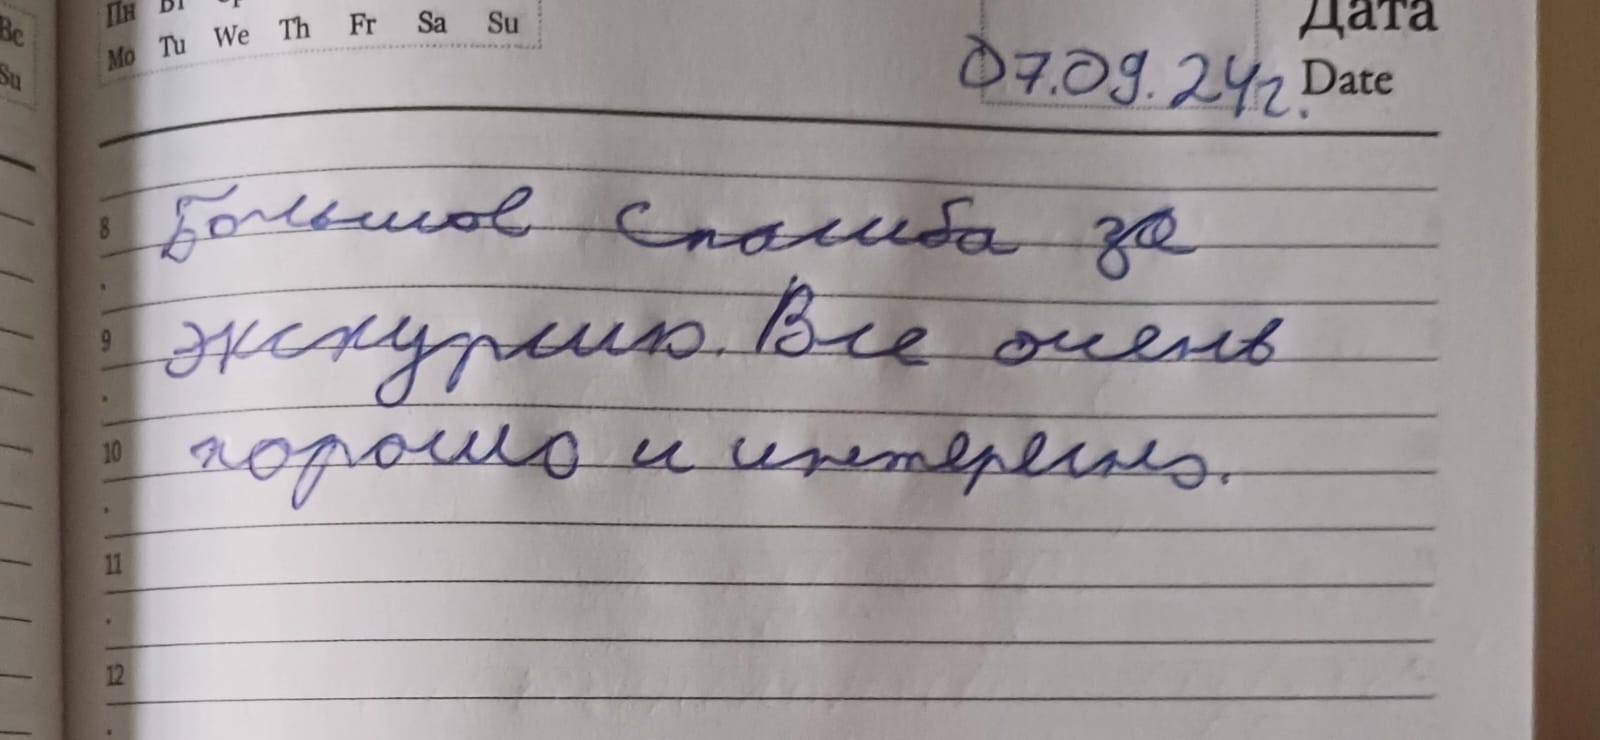 Вс
Su
Пн Вт Ср
Mo Tu We Th Fr Sa Su
Дата
07.09.24г. Date
8 Большое спасибо за
9 экскурсию. Все очень
10 хорошо и интересно.
11
12